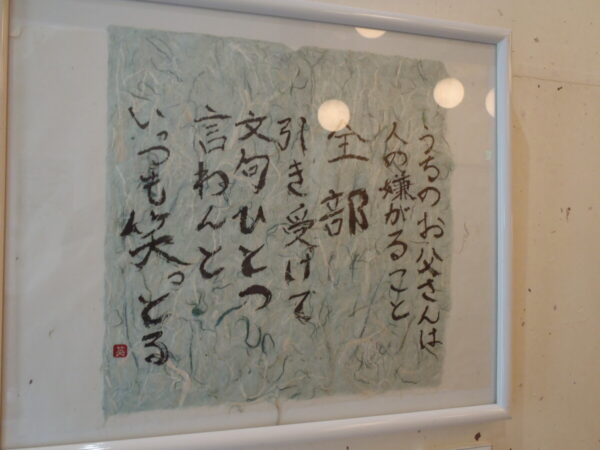 うちのお父さんは
人の嫌がること
全部
引き受けて
文句ひとつ
言わんと
いっつも笑っとる